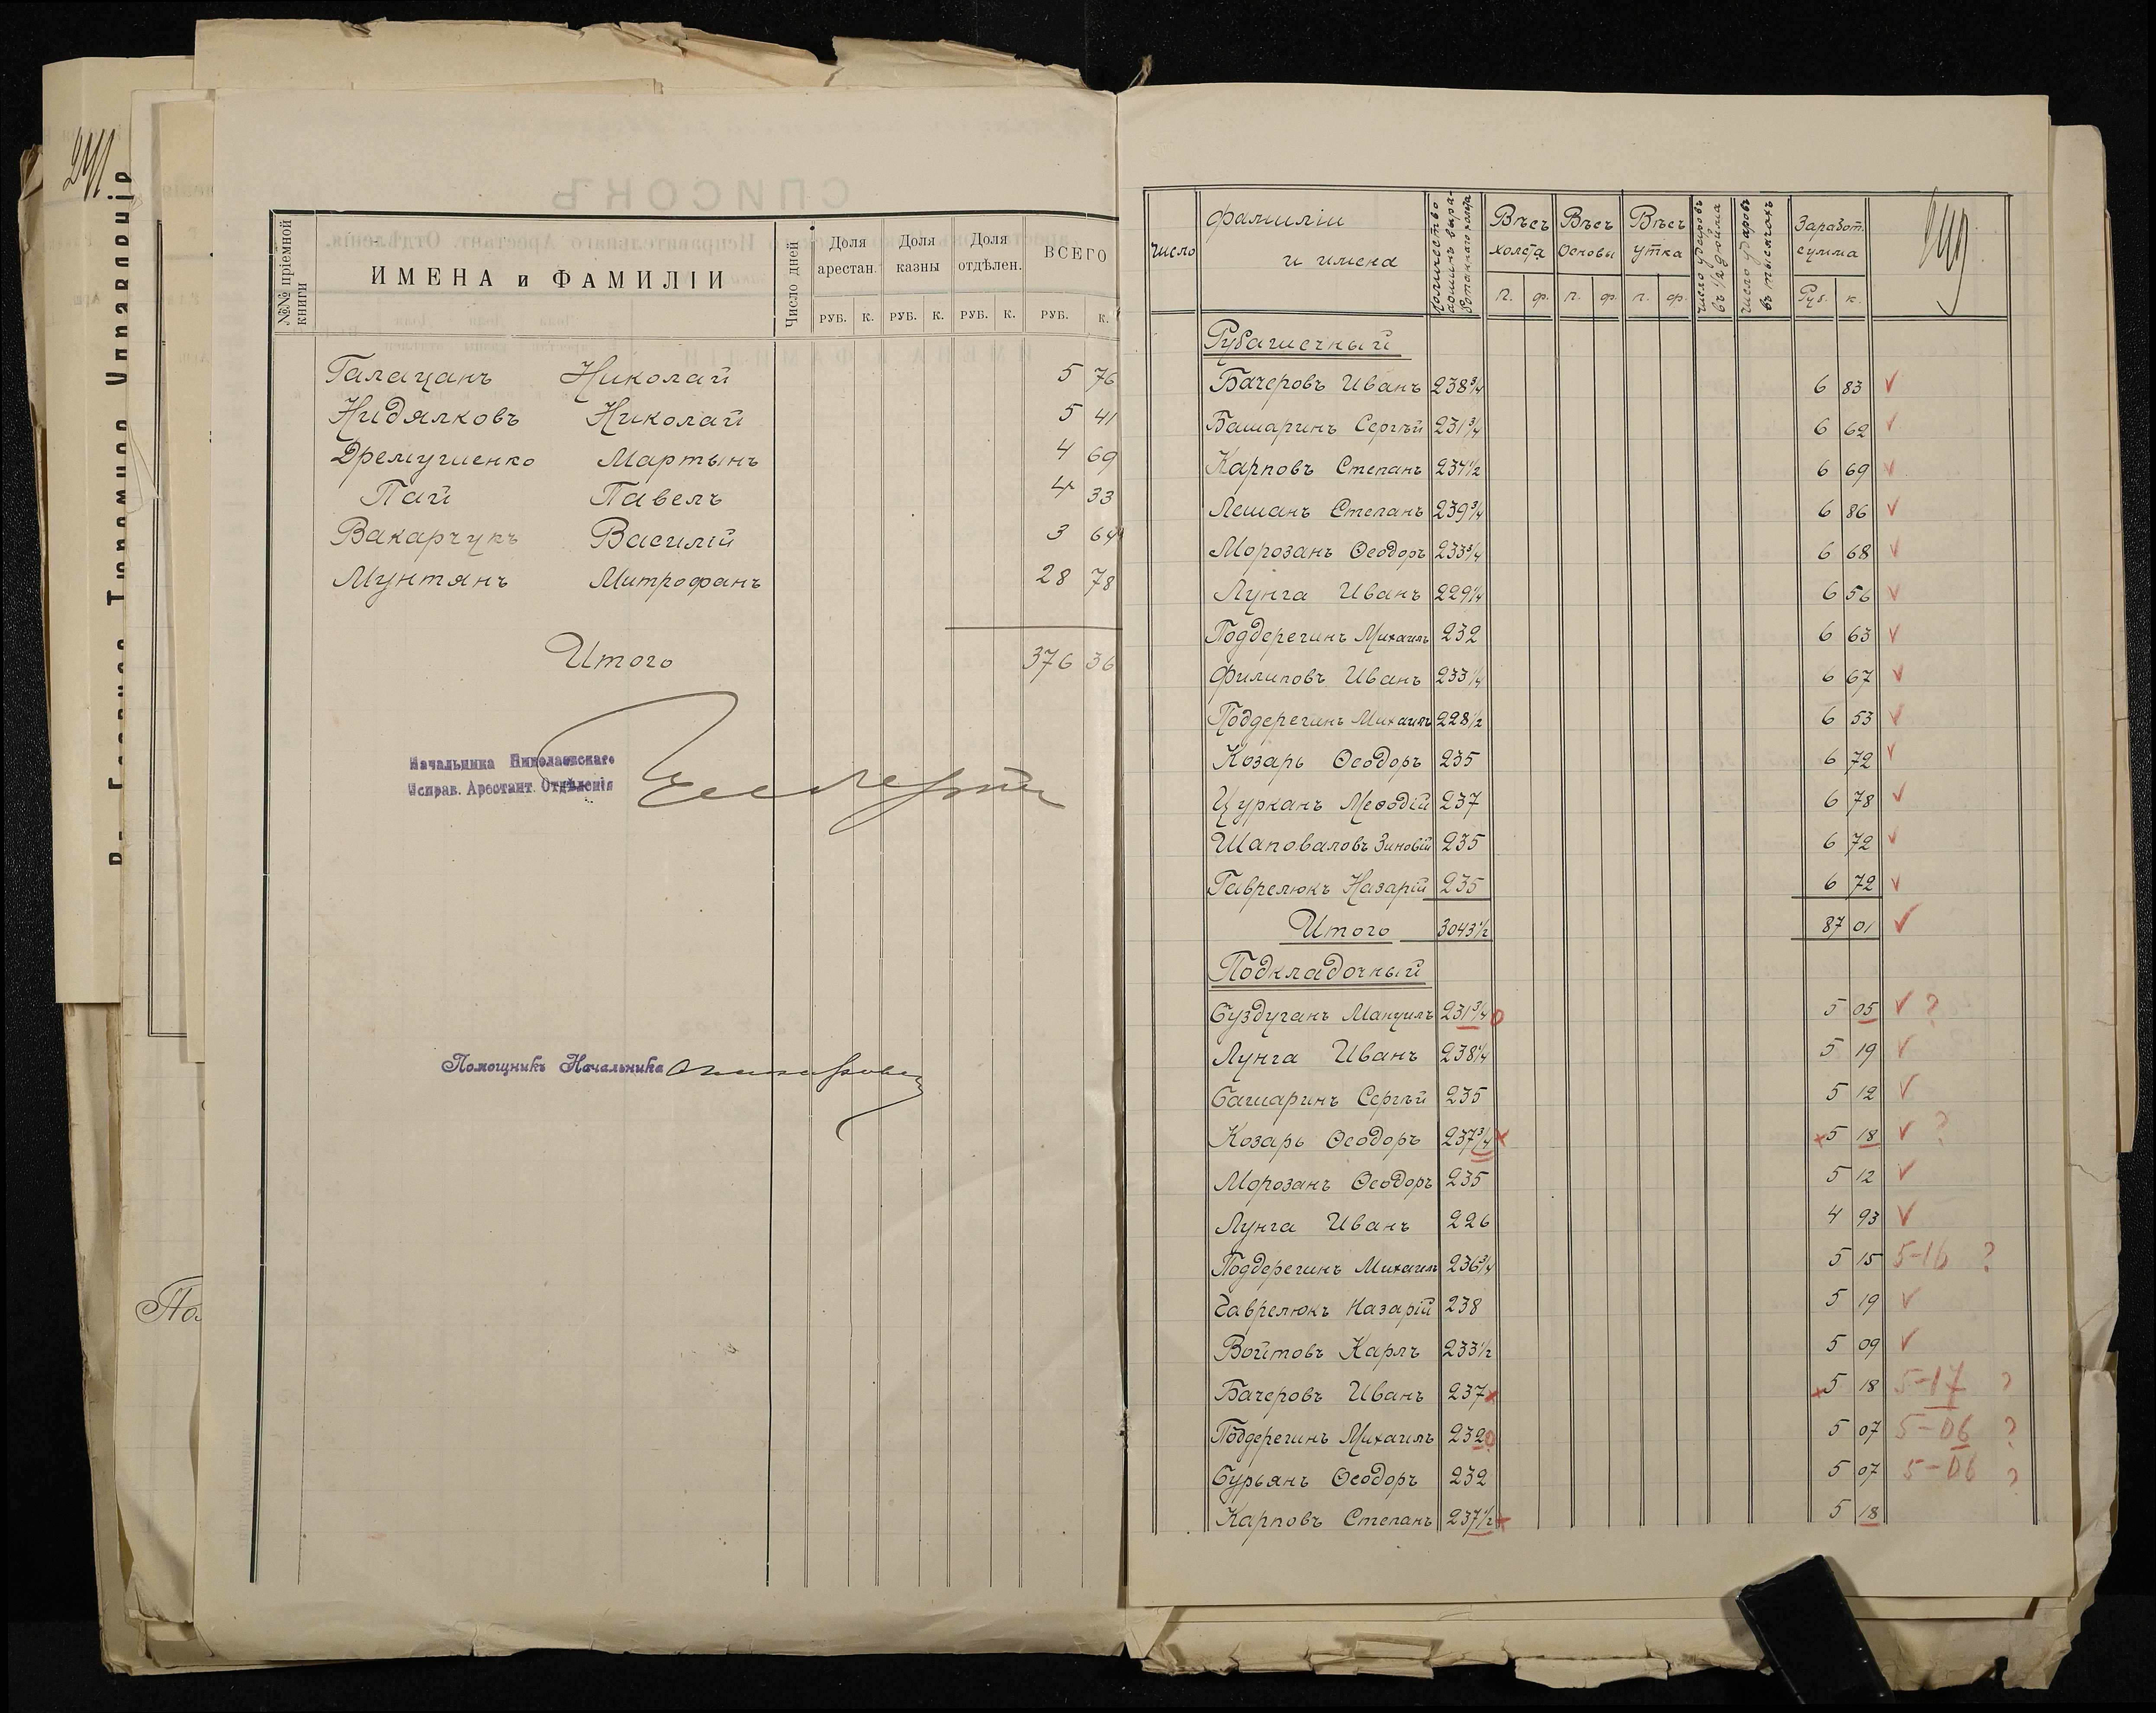 241
Въ Главное Тюремное Управленіе
По
№№ пріемной книги
ИМЕНА и ФАМИЛІИ
Число дней
Доля арестан.
Доля казны
Доля отдѣлен.
ВСЕГО
РУБ. К. РУБ. К. РУБ. К. РУБ. К.
Галацанъ Николай 5 76
Нидялковъ Николай 5 41
Дремушенко Мартынъ 4 69
Пай Павелъ 4 33
Вакарчукъ Василій 3 64
Мунтянъ Митрофанъ 28 78
Итого 376 36
Начальника Николаевскаго
Исправ. Арестант. Отдѣленія
Помощникъ Начальника
Число
Фамиліи и имена
Количество аршинъ выработаннаго холста
Вѣсъ холста
Вѣсъ Основы
Вѣсъ утка
Число ударовъ въ 1/2 дюйма
Число ударовъ въ тысячахъ
Заработ. сумма
п. ф. п. ф. п. ф. Руб. к.
Рубашечный
Бачеровъ Иванъ 238 3/4 6 83
Башаринъ Сергѣй 231 3/4 6 62
Карповъ Степанъ 234 1/2 6 69
Лешанъ Степанъ 239 3/4 6 86
Морозанъ Ѳеодоръ 233 3/4 6 68
Лунга Иванъ 229 1/4 6 56
Поддерегинъ Михаилъ 232 6 63
Филиповъ Иванъ 233 1/4 6 67
Поддерегинъ Михаилъ 228 1/2 6 53
Козарь Ѳеодоръ 235 6 72
Цурканъ Меѳодій 237 6 78
Шаповаловъ Зиновій 235 6 72
Гаврелюкъ Назарій 235 6 72
Итого 3043 1/2 87 01
Подкладочный
Буздуганъ Мануилъ 231 3/4 5 05 ?
Лунга Иванъ 238 1/4 5 19
Башаринъ Сергѣй 235 5 12
Козарь Ѳеодоръ 237 3/4 5 18 ?
Морозанъ Ѳеодоръ 235 5 12
Лунга Иванъ 226 4 93
Поддерегинъ Михаилъ 236 3/4 5 15 5-16 ?
Гаврелюкъ Назарій 238 5 19
Войтовъ Карлъ 233 1/2 5 09
Бачеровъ Иванъ 237 5 18 5-17 ?
Поддерегинъ Михаилъ 232 5 07 5-06 ?
Бурьянъ Ѳеодоръ 232 5 07 5-06 ?
Карповъ Степанъ 237 1/2 5 18